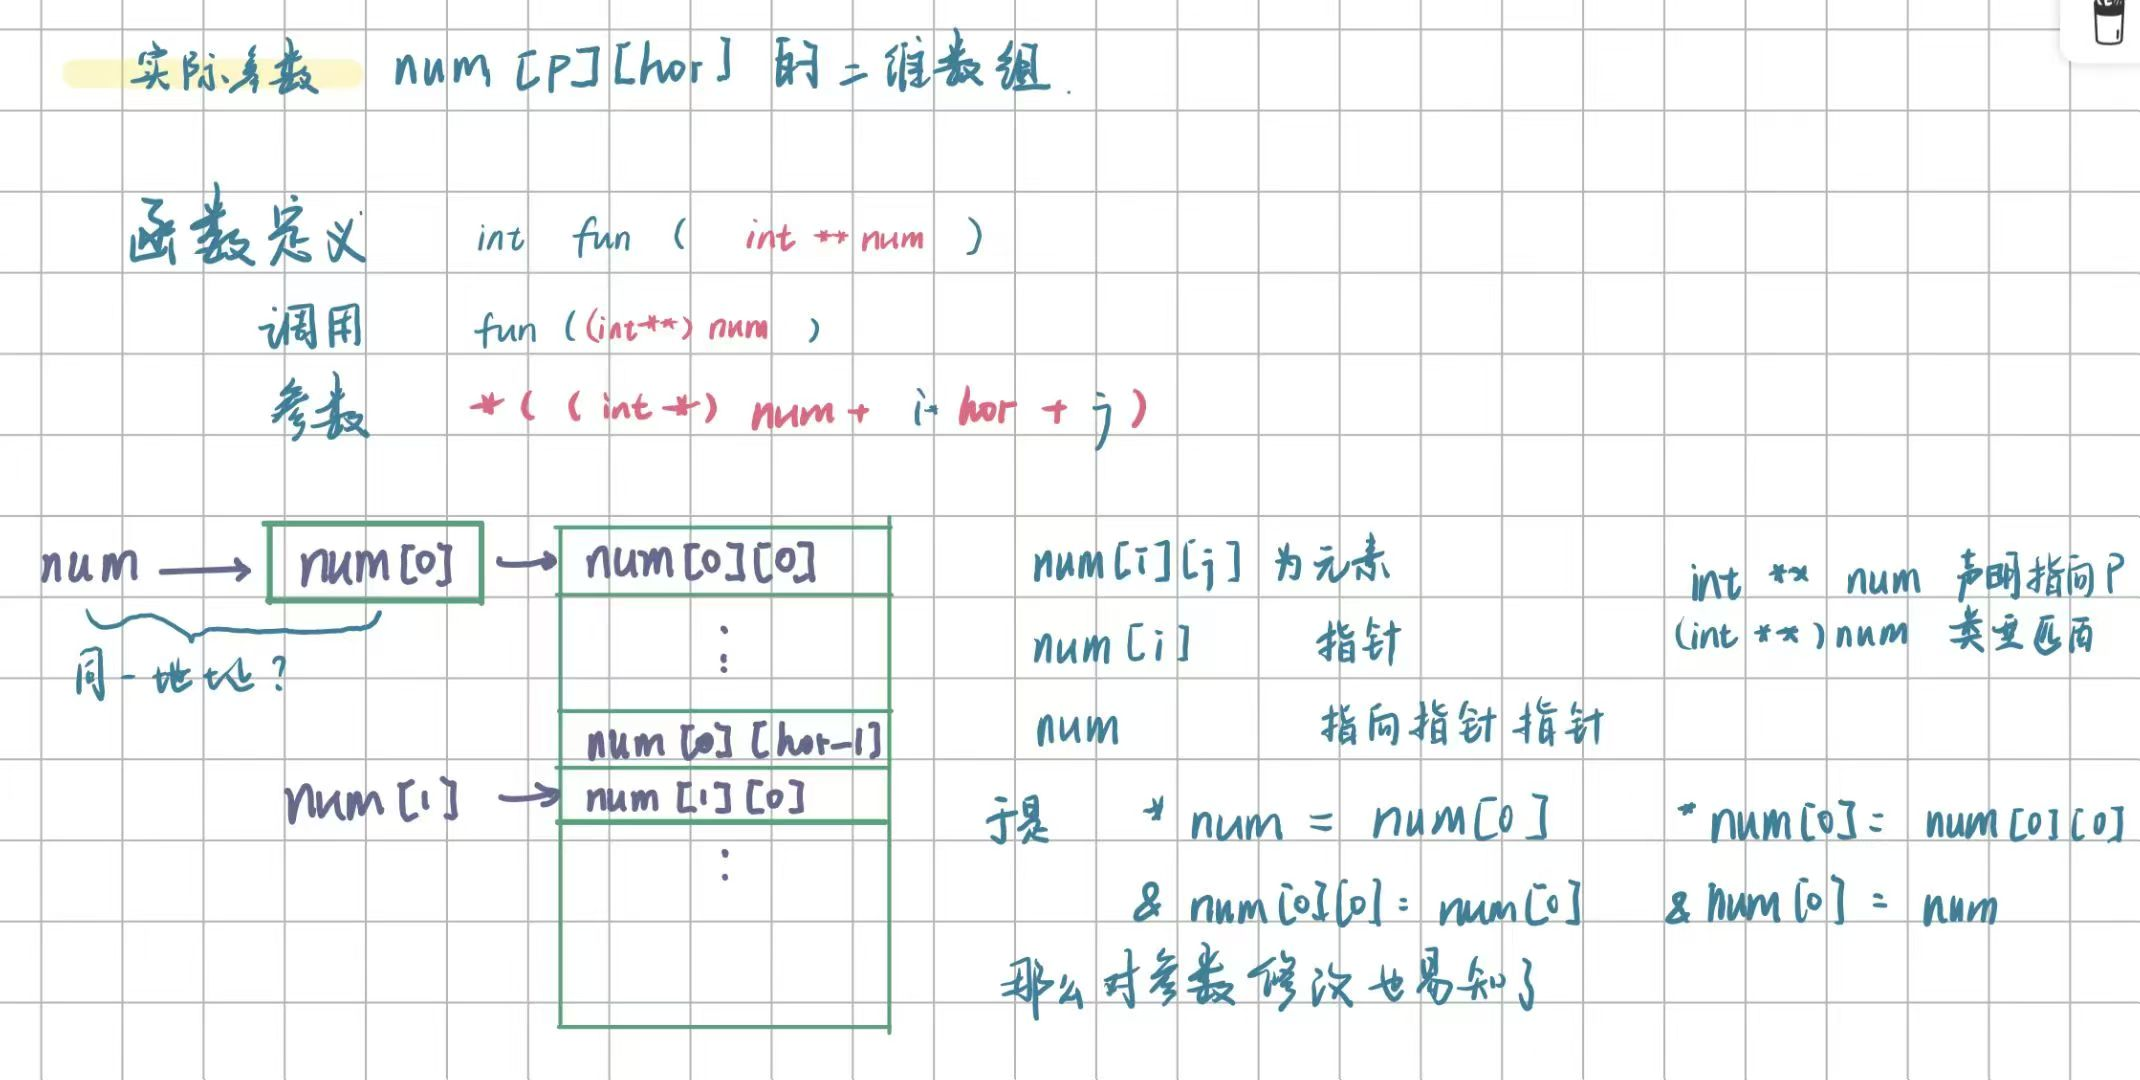 实际参数 num [P][hor] 的二维数组.
函数定义 int fun ( int ** num )
调用 fun ((int**) num )
参数 *( ( int *) num + i* hor + j )
num → num[0] → num[0][0]
同一地址?
⋮
num [0] [hor-1]
num [1] → num [1][0]
⋮
num[i][j] 为元素
num [i] 指针
num 指向指针指针
int ** num 声明指向P
(int **) num 类型匹配
于是 * num = num[0] * num[0] = num[0][0]
& num[0][0] = num[0] & num[0] = num
那么对参数修改也易知了